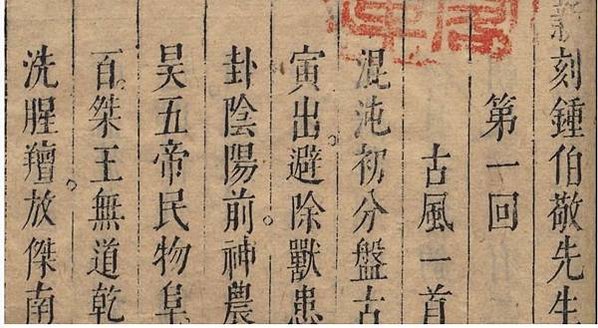 新刻鍾伯敬先生
第一回
古風一首
混沌初分盤古
寅出。避除獸患
卦陰陽前。神農
昊五帝民物阜。
百。桀王無道乾
洗腥羶。放桀南